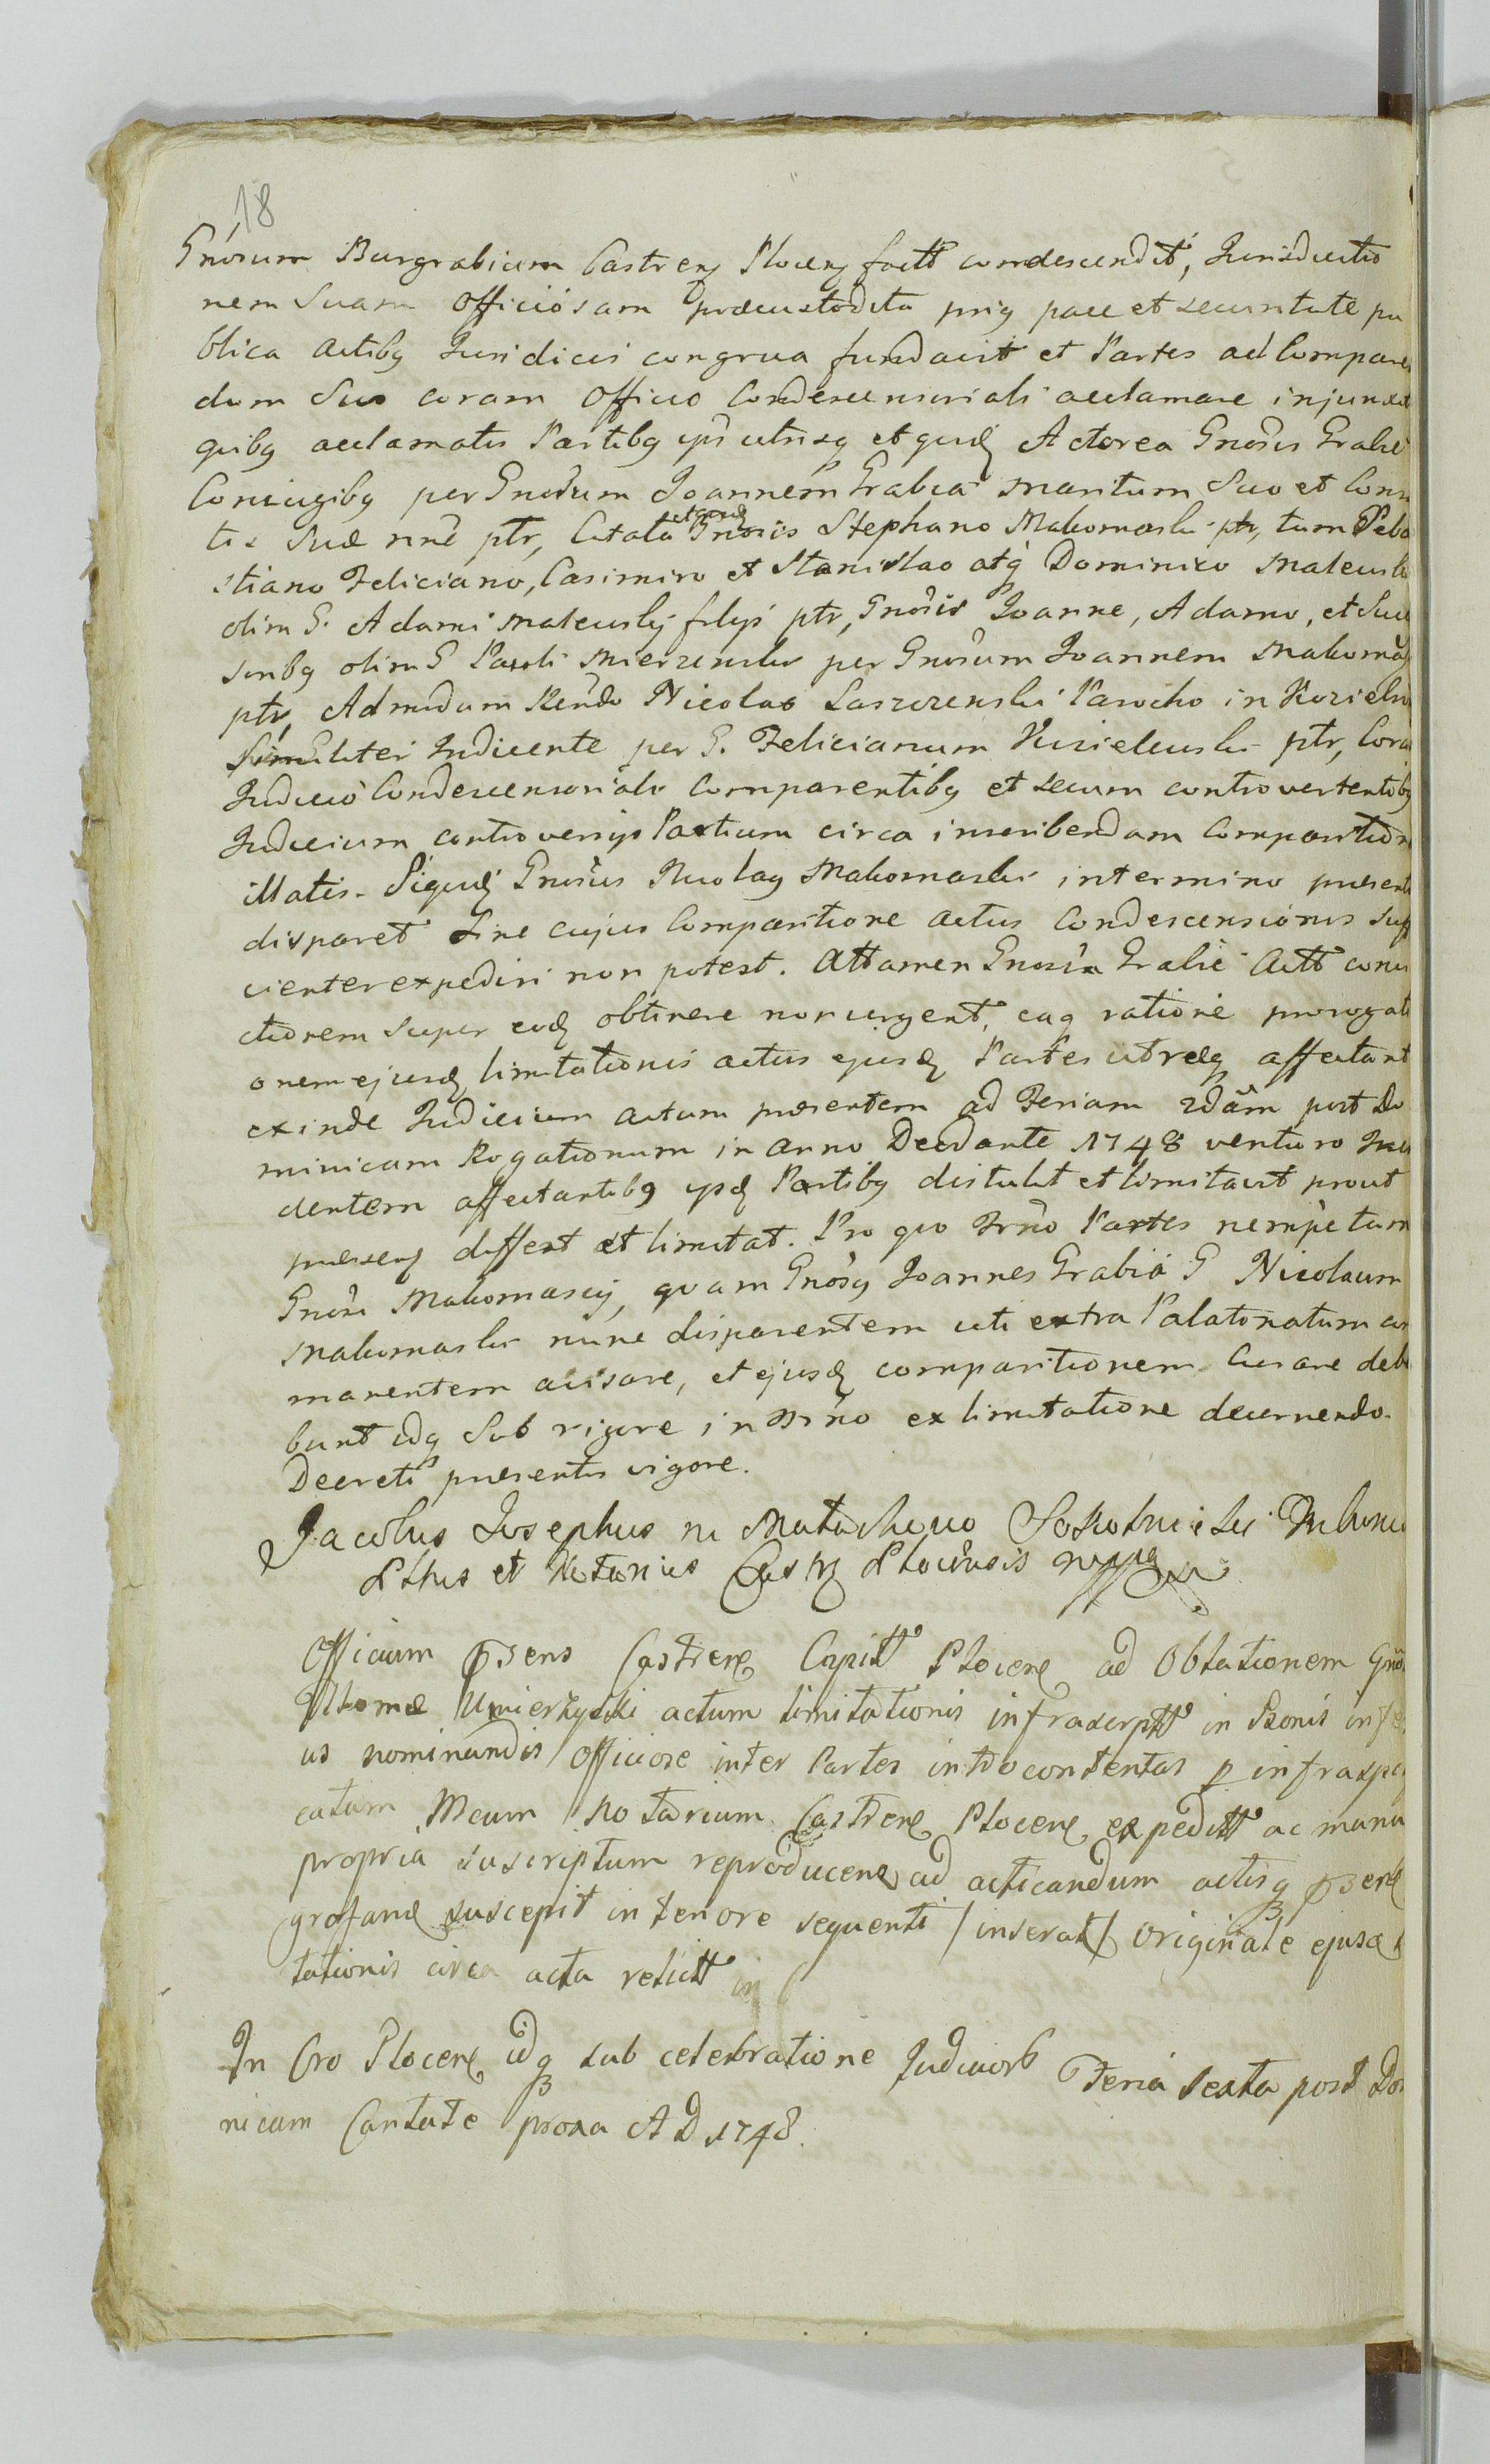 18
Gnosum Burgrabium Castren Plocen factt condescendit, Jurisdictio
nem Suam Officiosam præcustodita prig pace et securitate pu
blica actibg Juridicis congrua fundavit et Partes ad Comparen
dum Suo coram Officio Condescensoriali acclamare injunxit
quibg acclamatis Partibg ipis utrisq et quid Actorea Gnosis Grabie
Coniugibg per Gnosum Joannem Grabia maritum Suo et Consor
tis Suæ nne ptr, Citata et quid Gnosis Stephano Makomaski ptr, tum Seba
stiano Feliciano, Casimiro et Stanislao atq Dominico Makuski
olim G. Adami Makuskj filijs ptr, Gnosis Joanne, Adamo, et Succ
soribg olim G Pauli Mierzenski per Gnosum Joannem Makomas
ptr, Admodum Rendo Nicolao Laszczenski Parocho in Koziebro
Similiter Judicente per G. Felicianum Kisieleuski ptr, Cora
Judicio Condescensoriali Comparentibg et secum controvertentibg
Judicium controversijs Partium circa inscribendam Comparition
illatis. Siquid Gnosus Nicolag Makomaski in termino presenti
disparet sine cujus Comparitione actus Condescensionis suff
cienter expediri non potest. Attamen Gnosi Grabie Actt conu
ctionem super eod obtinere non urgent, eaq ratione prorogati
onem ejusd limitationis actus ejusd Partes utræq affectant
exinde Judicium actum presentem ad Feriam 2dam post Do
minicam Rogationum in anno Deo dante 1748 venturo Inci
dentem affectantibg ipsd Partibg distulit et limitavit prout
presens differt et limitat. Pro quo Trno Partes nempe tum
Gnosi Makomascij, quam Gnosg Joannes Grabia G Nicolaum
Makomaski nunc disparentem uti extra Palatinatum com
manentem avisare, et ejusd comparitionem Curare debe
bunt idq Sub rigore in Trno ex limitatione decernendo.
Decreti presentis vigore.
Jacobus Josephus in Sokolnicki Tribunus
Plscus et Notarius Castr Plocensis mpp
Officium psens Castren Capitt Plocen ad Oblationem Gnosi
Thomæ Umierzyski actum limitationis infrascrptt in Psonis infer
us nominandis Officiose inter Partes introcontentas p infraspe
catum Meum Notarium Castren Plocen expeditt ac manu
propria suscriptum reproducen ad acticandum actisq psen
grosand suscepit in tenore sequenti /inserat/ originale ejusd
tationis circa acta relictt in
In Cro Plocen idq sub celebratione Judiciorb Feria Sexta post Do
nicam Cantate proxa A D 1748.